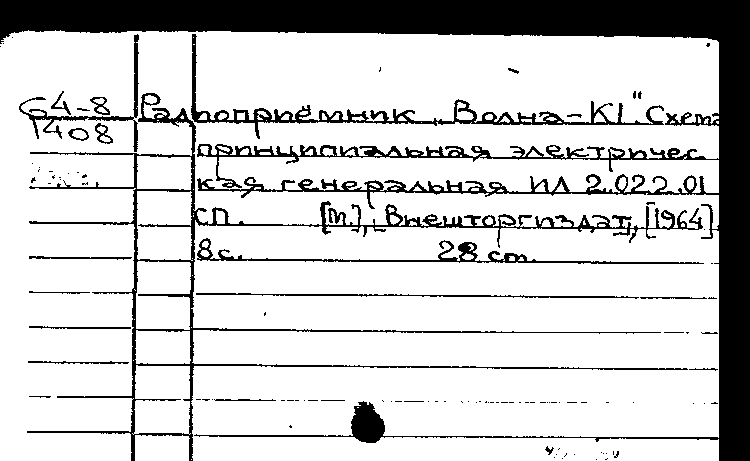 64-8 Радиоприёмник „Волна-К1". Схема
1408
принципиальная электричес
кая генеральная ИЛ 2.022.01
сп. [М.], [Внешторгиздат], [1964].
8 с. 28 см.